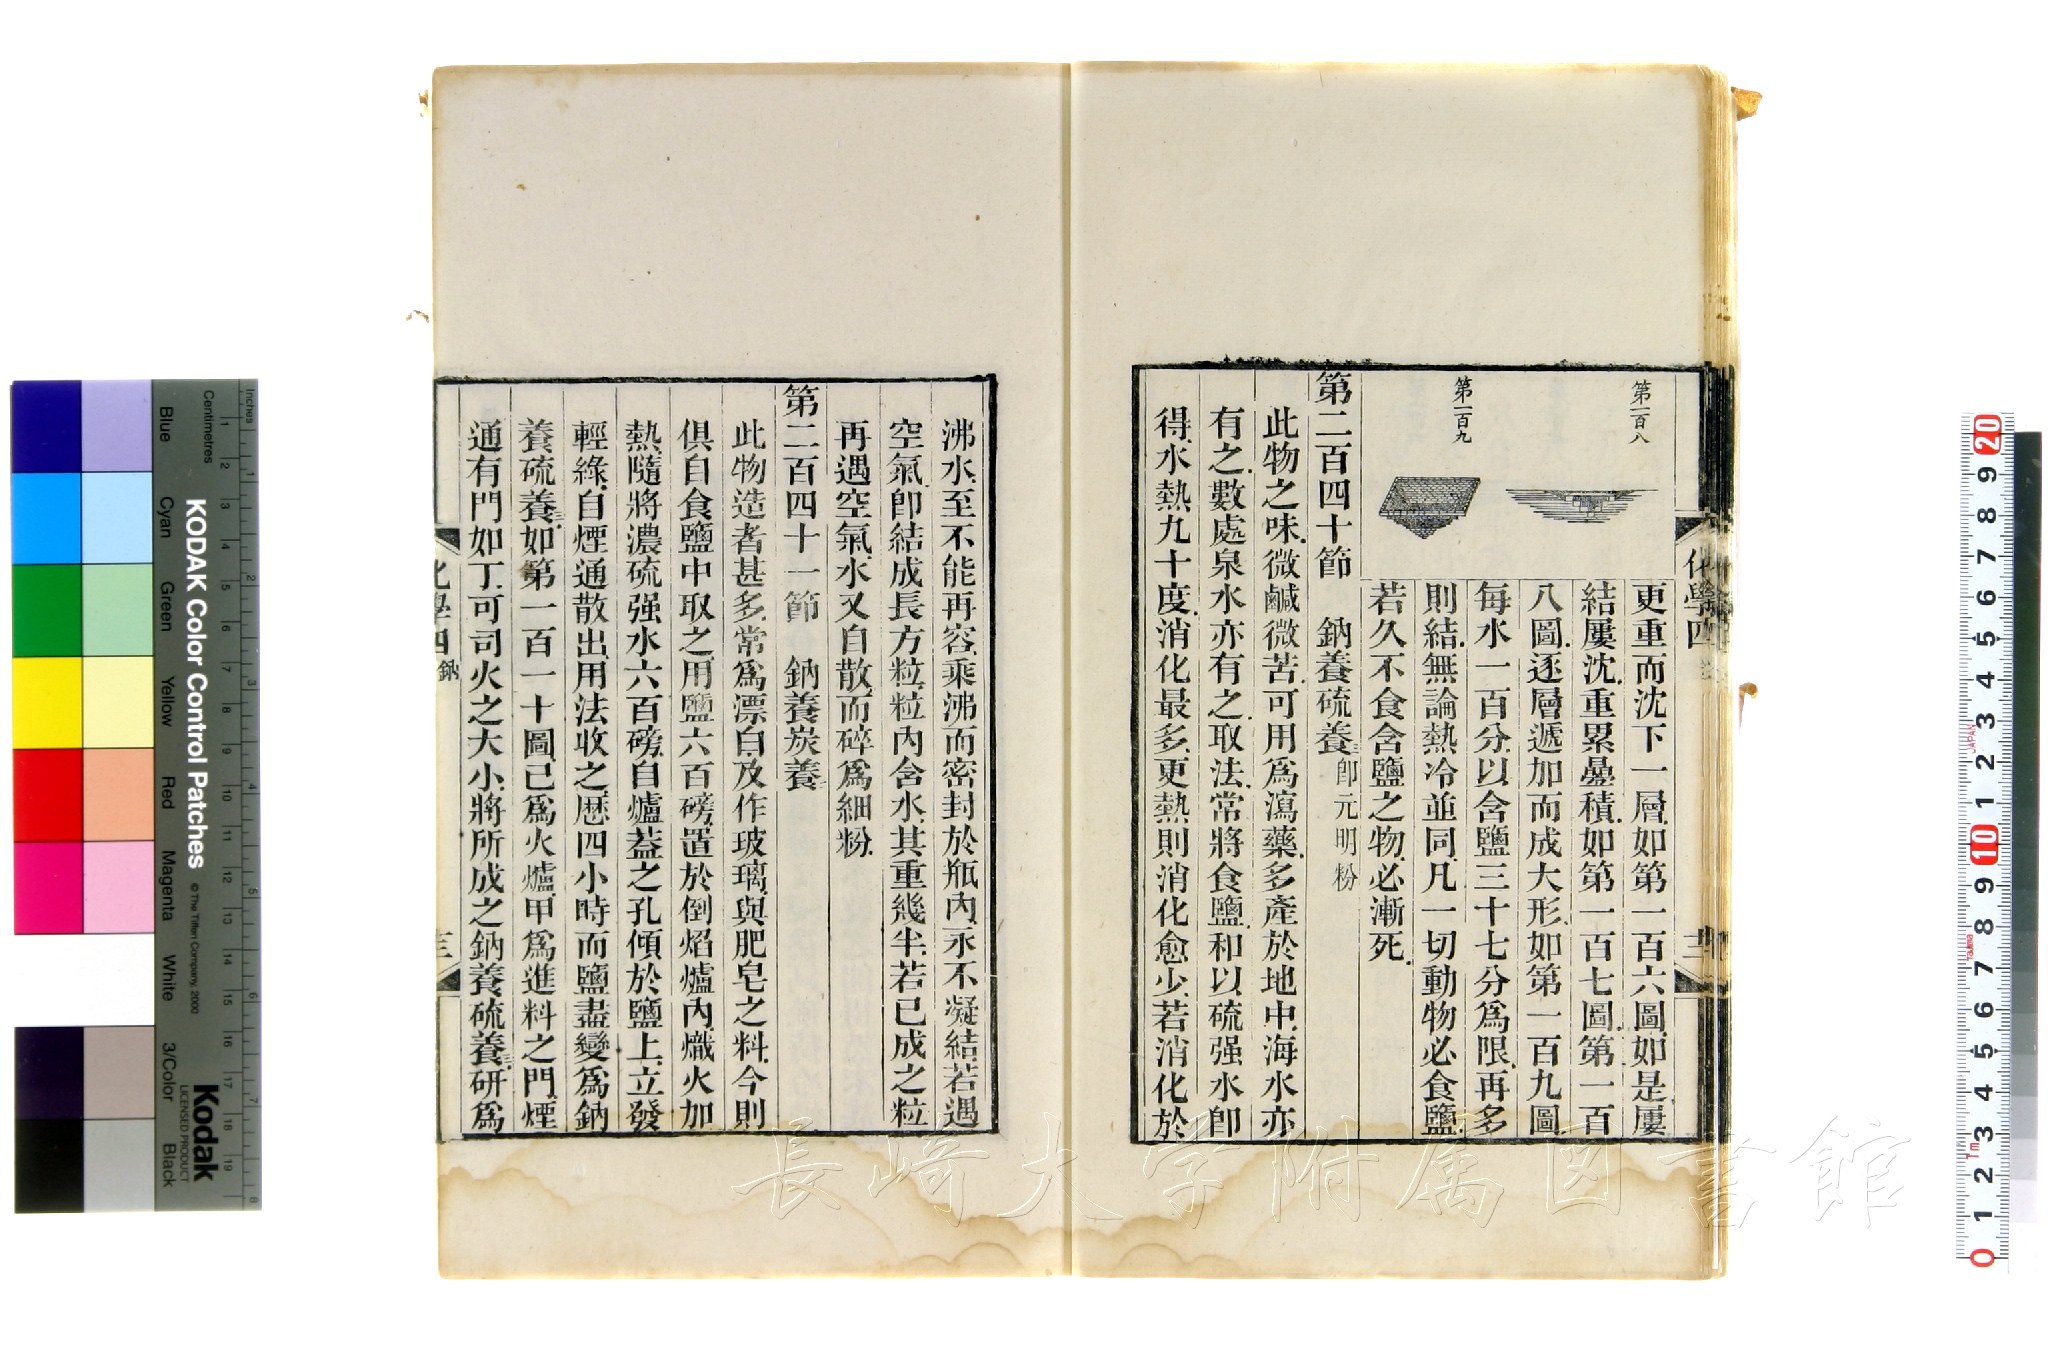 第一百八
第一百九
更重而沈下一層如第一百六圖如是屢
結屢沈重累曡積如第一百七圖第一百
八圖逐層遞加而成大形如第一百九圖
每水一百分以含鹽三十七分爲限再多
則結無論熱冷並同凡一切動物必食鹽
若久不食含鹽之物必漸死
第二百四十節 鈉養硫養三 卽元明粉
此物之味微鹹微苦可用爲瀉藥多產於地中海水亦
有之數處泉水亦有之取法常將食鹽和以硫强水卽
得水熱九十度消化最多更熱則消化愈少若消化於
化學四
沸水至不能再容乘沸而密封於瓶內永不凝結若遇
空氣卽結成長方粒粒內含水其重幾半若已成之粒
再遇空氣水又自散而碎爲細粉
第二百四十一節 鈉養炭養二
此物造者甚多常爲漂白及作玻璃與肥皂之料今則
俱自食鹽中取之用鹽六百磅置於倒焰爐內熾火加
熱隨將濃硫强水六百磅自爐蓋之孔傾於鹽上立發
輕綠自煙通散出用法收之歷四小時而鹽盡變爲鈉
養硫養三如第一百一十圖己爲火爐甲爲進料之門煙
通有門如丁可司火之大小將所成之鈉養硫養三研爲
化學四 鈉
長崎大学附属図書館
KODAK Color Control Patches
© The Tiffen Company, 2000
Kodak
LICENSED PRODUCT
Inches
Centimetres
Blue
Cyan
Green
Yellow
Red
Magenta
White
3/Color
Black
1 2 3 4 5 6 7 8
1 2 3 4 5 6 7 8 9 10 11 12 13 14 15 16 17 18 19
0 1 2 3 4 5 6 7 8 9 10 1 2 3 4 5 6 7 8 9 20